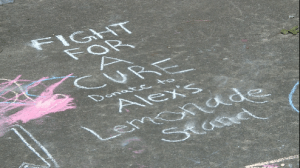 FIGHT
FOR
A
CURE
Donate to
ALEX's
Lemonade
Stand